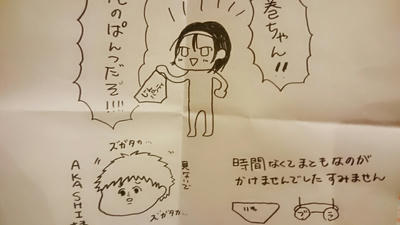 巻ちゃん!!
のぱんつだぞ!!!!
ズガタカ…
見ないで
ズガタカ…
AKASHI様
時間なくてまともなのが
かけませんでしたすみません
いも
ブラ